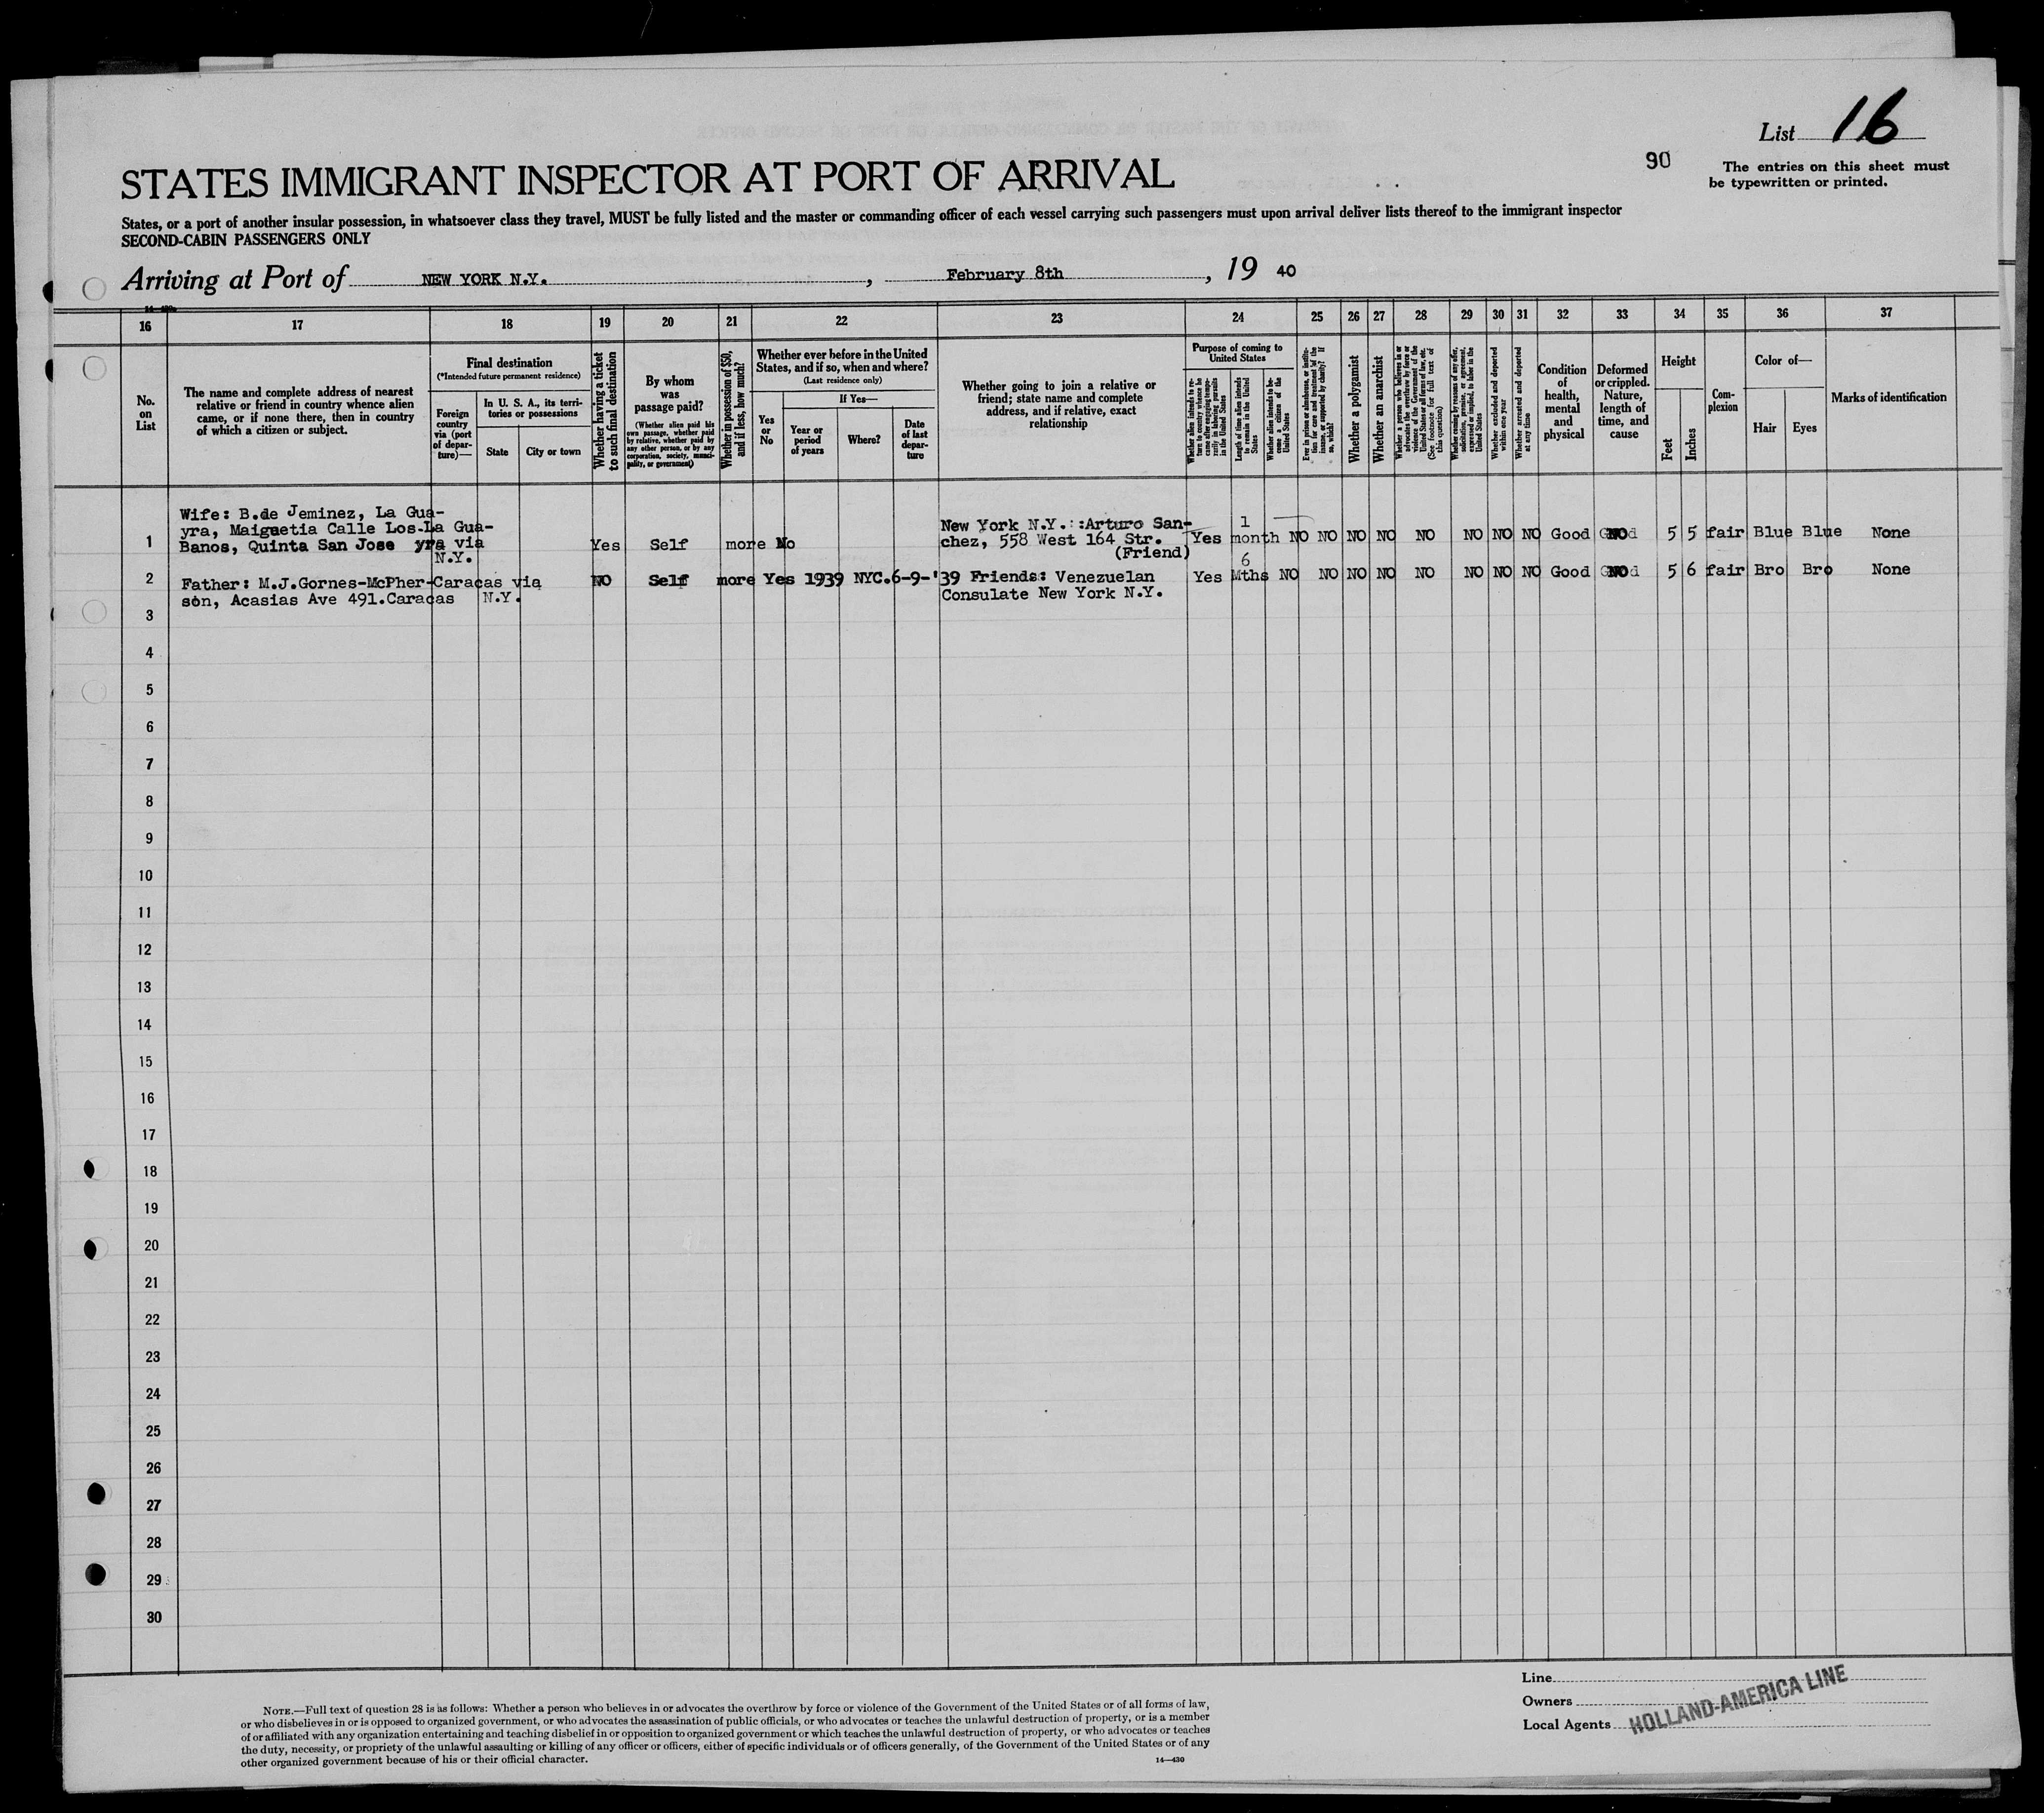 List 16
90
The entries on this sheet must
be typewritten or printed.
STATES IMMIGRANT INSPECTOR AT PORT OF ARRIVAL
States, or a port of another insular possession, in whatsoever class they travel, MUST be fully listed and the master or commanding officer of each vessel carrying such passengers must upon arrival deliver lists thereof to the immigrant inspector
SECOND-CABIN PASSENGERS ONLY
Arriving at Port of NEW YORK N.Y. , February 8th , 19 40
16 17 18 19 20 21 22 23 24 25 26 27 28 29 30 31 32 33 34 35 36 37
No.
on
List
The name and complete address of nearest
relative or friend in country whence alien
came, or if none there, then in country
of which a citizen or subject.
Final destination
(*Intended future permanent residence)
Foreign
country
via (port
of depar-
ture)—
In U. S. A., its terri-
tories or possessions
State
City or town
Whether having a ticket
to such final destination
By whom
was
passage paid?
(Whether alien paid his
own passage, whether paid
by relative, whether paid by
any other person, or by any
corporation, society, munici-
pality, or government)
Whether in possession of $50,
and if less, how much?
Whether ever before in the United
States, and if so, when and where?
(Last residence only)
Yes
or
No
If Yes—
Year or
period
of years
Where?
Date
of last
depar-
ture
Whether going to join a relative or
friend; state name and complete
address, and if relative, exact
relationship
Purpose of coming to
United States
Whether alien intends to re-
turn to country whence he
came after engaging tempo-
rarily in laboring pursuits
in the United States
Length of time alien intends
to remain in the United
States
Whether alien intends to be-
come a citizen of the
United States
Ever in prison or almshouse, or institu-
tion for care and treatment of the
insane, or supported by charity? If
so, which?
Whether a polygamist
Whether an anarchist
Whether a person who believes in or
advocates the overthrow by force or
violence of the Government of the
United States or all forms of law, etc.
(See footnote for full text of
this question)
Whether coming by reason of any offer,
solicitation, promise, or agreement,
expressed or implied, to labor in the
United States
Whether excluded and deported
within one year
Whether arrested and deported
at any time
Condition
of
health,
mental
and
physical
Deformed
or crippled.
Nature,
length of
time, and
cause
Height
Feet
Inches
Com-
plexion
Color of—
Hair
Eyes
Marks of identification
1
Wife: B.de Jeminez, La Gua-
yra, Maiguetia Calle Los
Banos, Quinta San Jose
La Gua-
yra via
N.Y.
Yes Self more No
New York N.Y.::Arturo San-
chez, 558 West 164 Str.
(Friend)
Yes 1 month NO NO NO NO NO NO NO NO Good NO 5 5 fair Blue Blue None
2
Father: M.J.Gornes-McPher-
son, Acasias Ave 491.Caracas
Caracas via
N.Y.
NO Self more Yes 1939 NYC.6-9-'39
Friends: Venezuelan
Consulate New York N.Y.
Yes 6 Mths NO NO NO NO NO NO NO NO Good NO 5 6 fair Bro Bro None
3
4
5
6
7
8
9
10
11
12
13
14
15
16
17
18
19
20
21
22
23
24
25
26
27
28
29
30
NOTE.—Full text of question 28 is as follows: Whether a person who believes in or advocates the overthrow by force or violence of the Government of the United States or of all forms of law,
or who disbelieves in or is opposed to organized government, or who advocates the assassination of public officials, or who advocates or teaches the unlawful destruction of property, or is a member
of or affiliated with any organization entertaining and teaching disbelief in or opposition to organized government or which teaches the unlawful destruction of property, or who advocates or teaches
the duty, necessity, or propriety of the unlawful assaulting or killing of any officer or officers, either of specific individuals or of officers generally, of the Government of the United States or of any
other organized government because of his or their official character.
14—430
Line
Owners
Local Agents
HOLLAND-AMERICA LINE